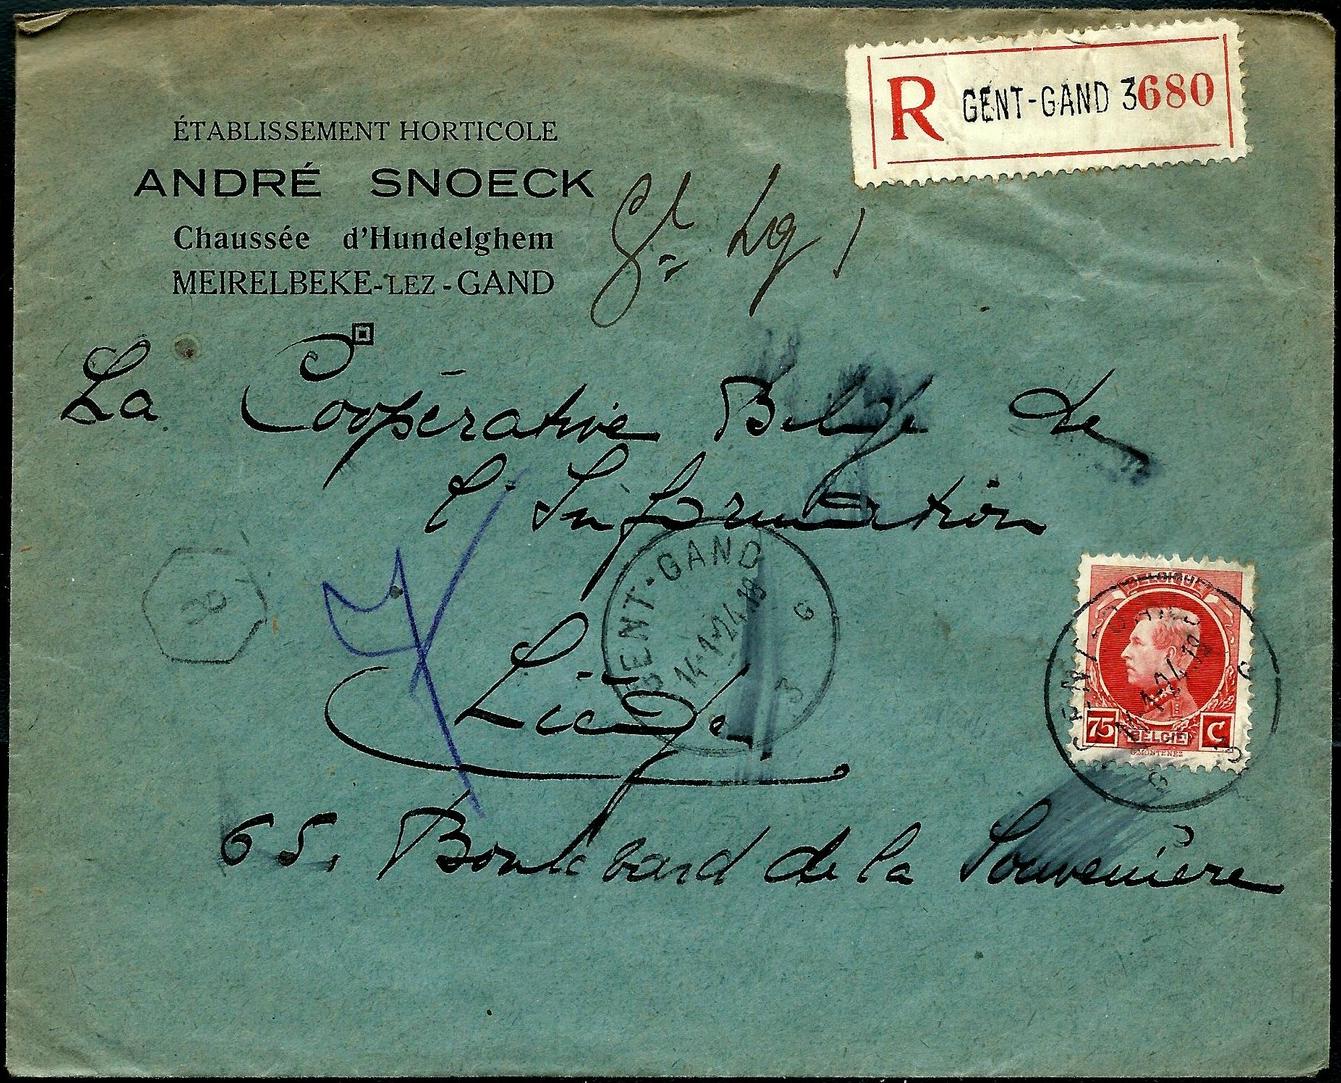 ÉTABLISSEMENT HORTICOLE
ANDRÉ SNOECK
Chaussée d'Hundelghem
MEIRELBEKE-LEZ-GAND
R GENT-GAND 3 680
La Coopérative Belge de
l'Information
Liége
65, Boulevard de la Sauvenière
GENT-GAND
14-1-24.18
G 3
BELGIQUE
75 C
BELGIË
G. MONTENEZ